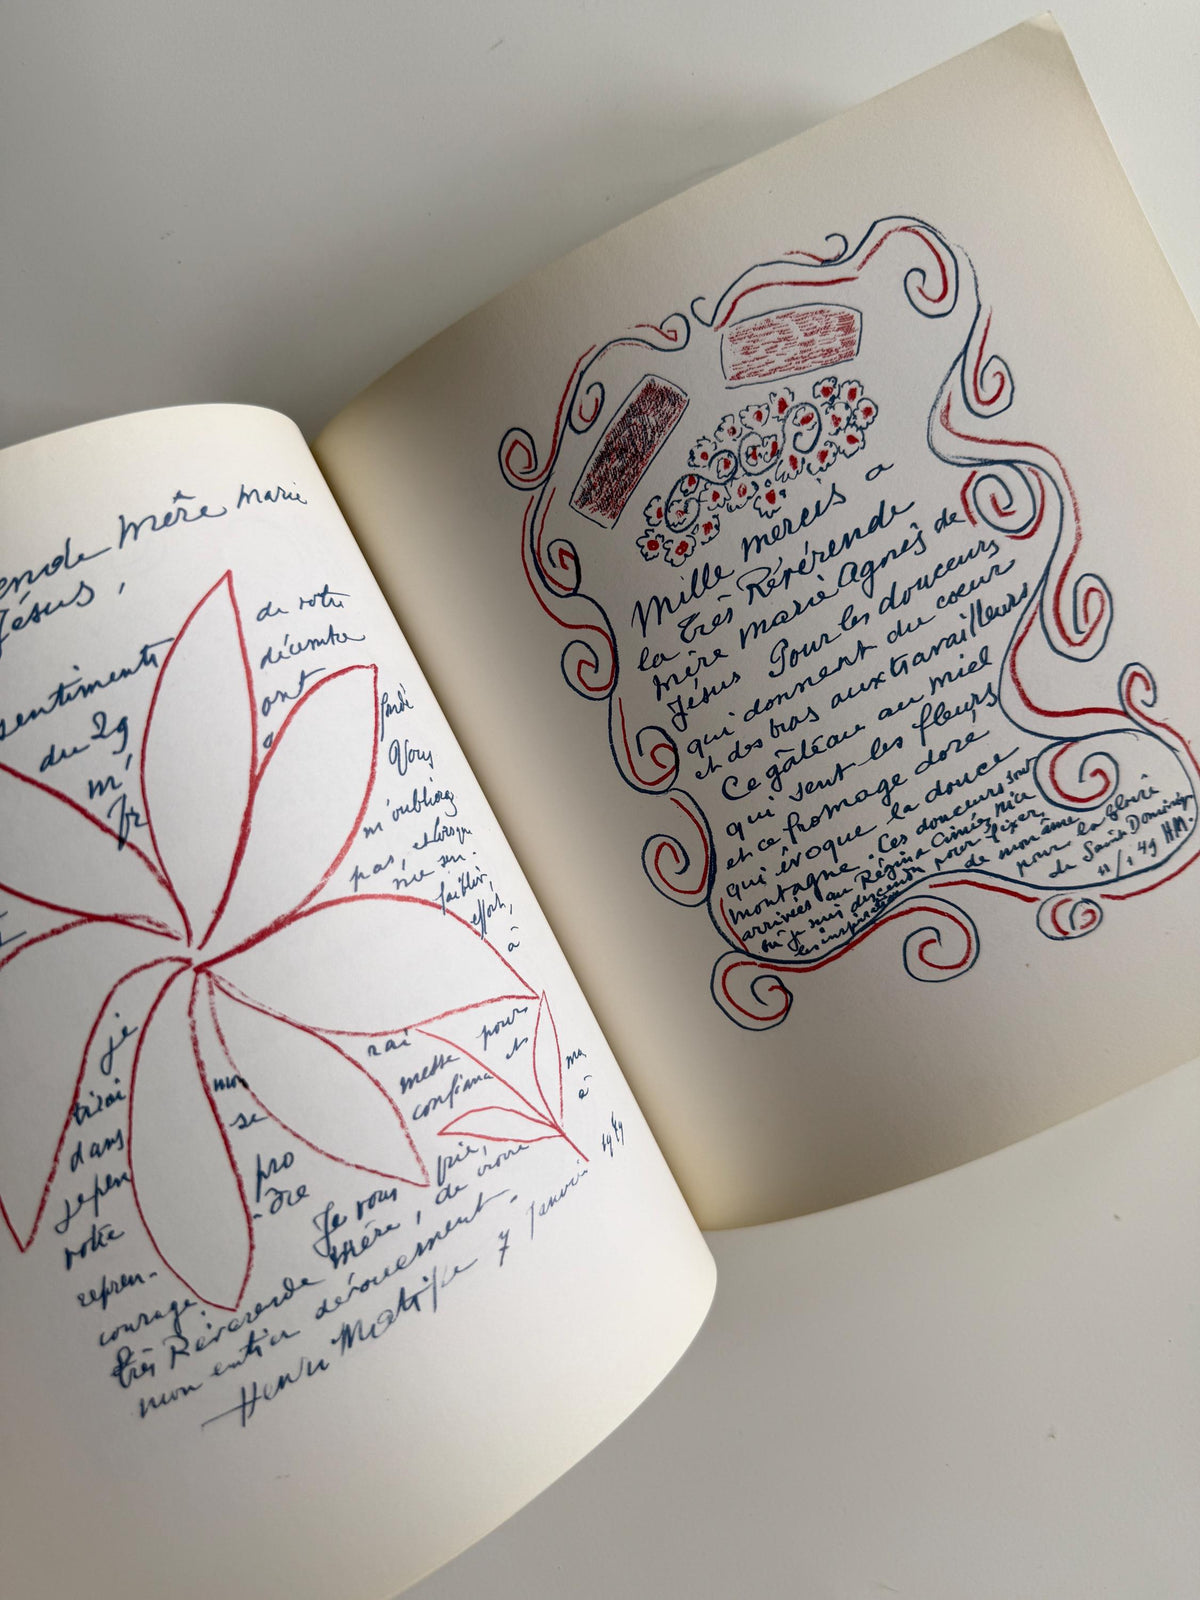 ende Mère Marie
Jésus,
sentiments
de votre
du 29
décembre
m'
ont
fondi
Vous
m'oubliez
pas, et lorsque
faiblir,
effort,
à
je
tirai
dans
votre
repren-
courage.
mon
se
pro
rai
messe pour
confiance et
ma
à
Je vous prie,
très Révérende Mère, de croire
mon entier dévouement.
Henri Matisse 7 Janvier 1949
Mille mercis a
la très Révérende
Mère Marie Agnès de
Jésus Pour les douceurs
qui donnent du cœur
et des bras aux travailleurs
Ce gâteau au miel
qui sent les fleurs
et ce fromage doré
qui évoque la douce
montagne. Ces douceurs sont
arrivées au Régina Cimiez Nice
où je suis descendu pour fixer
les inspirations de mon âme
pour la gloire
de Saint Dominique
11/1 49 HM.